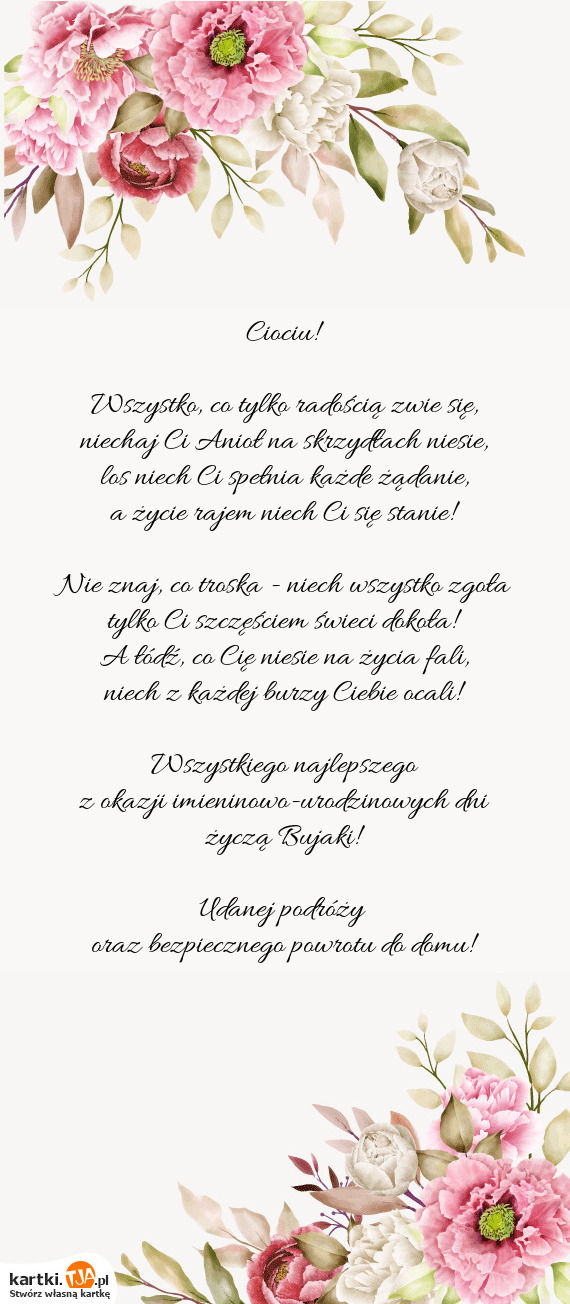 Ciociu!
Wszystko, co tylko radością zwie się,
niechaj Ci Anioł na skrzydłach niesie,
los niech Ci spełnia każde żądanie,
a życie rajem niech Ci się stanie!
Nie znaj, co troska - niech wszystko zgoła
tylko Ci szczęściem świeci dokoła!
A łódź, co Cię niesie na życia fali,
niech z każdej burzy Ciebie ocali!
Wszystkiego najlepszego
z okazji imieninowo-urodzinowych dni
życzą Bujaki!
Udanej podróży
oraz bezpiecznego powrotu do domu!
kartki.TJA.pl
Stwórz własną kartkę